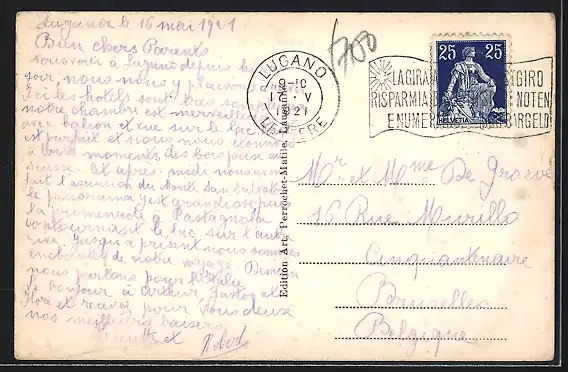 Lugano le 16 mai 1921
Bien chers Parents
Nous voici à Lugano depuis hier
soir, nous nous y plaisons
Ici les hotels sont très
notre chambre est merveilleuse
avec balcon et vue sur le lac
est parfait et nous nous
à bons moments des bons prix en
suisse. Cet après midi nous avons
fait l'ascension du Monte San Salvatore
le panorama y est grandiose, puis
la promenade à Castagnola
contournant le lac sur l'autre
rive. Jusqu'à présent nous sommes
enchantés de notre voyage. Demain
nous partons pour l'Italie
Le bonjour à Arthur, Gaston et
Flore et recevez pour vous deux
nos meilleurs baisers
et Robert
Edition Art. Perrochet-Matile, Lausanne
700
LUGANO
17. V
21
LETTERE
LA GIRA GIRO
RISPARMIA NOTEN
E NUMER BARGELD
25 25
HELVETIA
Mr et Mme De Graeve
16 Rue Murillo
Cinquantenaire
Bruxelles
Belgique